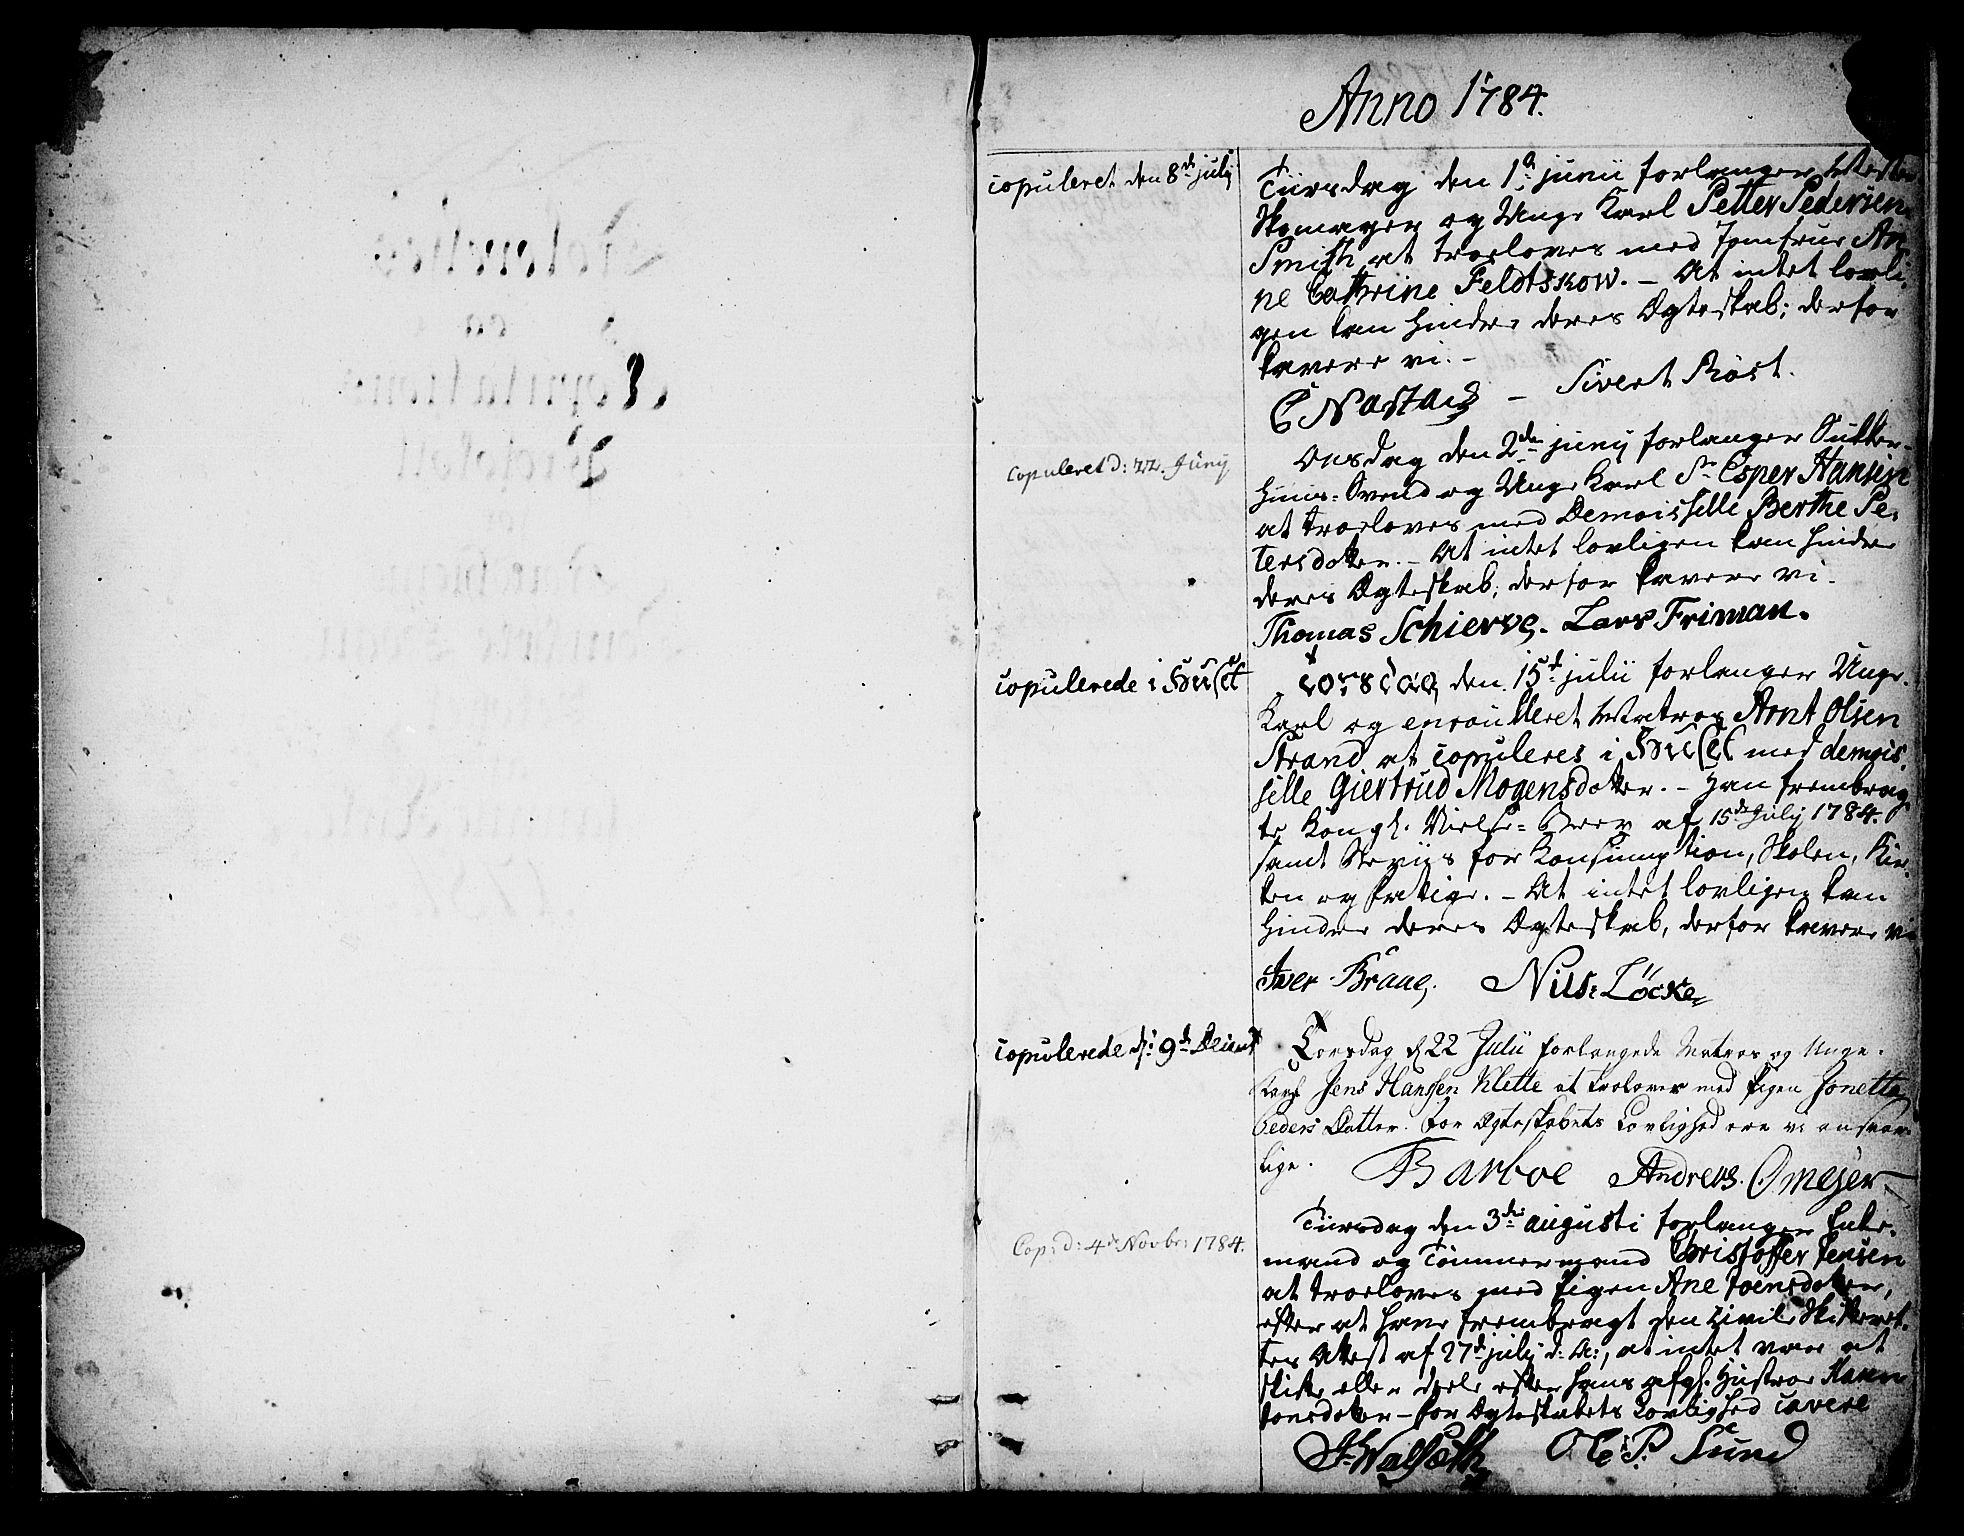 Anno 1784.
copuleret den 8de julij
Tiirsdag den 1te junii forlanger Mester
Skomager og Unge Karl Petter Pedersen
Smith at troeloves med Jomfrue An
ne Cathrine Feldtskow. – At intet lovli-
gen kan hindre deres Ægteskab; derfor
kavere vi. –
C Nastad – Sivert Röst.
Copuleret d: 22. Junij
Onsdag den 2den junij forlanger
Huus-Svend og Unge Karl Sr Esper Hansen
at troeloves med Demoisselle Berthe Pe-
tersdotter. – At intet lovligen kan hindre
deres Ægteskab, derfor kavere vi.
Thomas Schierve. Lars Friman.
copulerede i Huuset
Torsdag den 15de julii forlanger Unge
Karl og enroulleret Matros Arnt Olsen
Strand at copuleres i Huuset med demois-
selle Giertrud Mogensdotter. – Han frembrag-
te Kongl. Vielse-Brev af 15de July 1784.
samt Beviis for Konsumption, Skolen, Kir-
ken og Fattige. – At intet lovligen kan
hindre deres Ægteskab, derfor kavere vi
Iver Braae. Nils Löcke
copulerede d: 9de
Torsdag d 22 Julii forlangede Matros og Unge
Karl Jens Hanssen Klette at troloves med Pigen Jonetta
Peders Datter. For Ægteskabets Lovlighed ere vi ansvar-
lige.
Barboe Andreas Omejer
Cop: d: 4de Novbr: 1784.
Tiirsdag den 3die augusti forlanger Enke-
mand og Tömmermand Christoffer Jensen
at troeloves med Pigen Ane Joensdotter,
efter at have frembragt den Civile Skifteret-
tes Attest af 27de julij d: A:, at intet var at
skifte eller deele efter hans afgl: Hustroe Karen
Jonsdotter – for Ægteskabets Lovlighed cavere
J. Walseth O. P. Lund